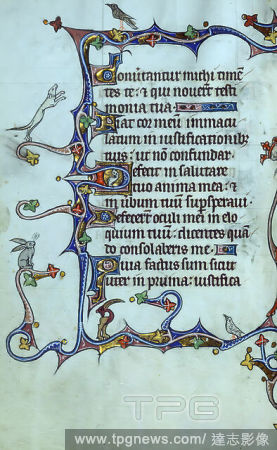 Convertantur michi timen
tes te: & qui noverunt testi
monia tua.
Fiat cor meum immacu
latum in iustificationibz
tuis: ut non confundar.
Defecit in salutare
tuo anima mea: &
in verbum tuum supsperavi.
Defecerunt oculi mei in elo
quium tuum: dicentes quan
do consolaberis me.
Quia factus sum sicut
uter in pruina: iustifica
TPG
www.tpgnews.com/達志影像